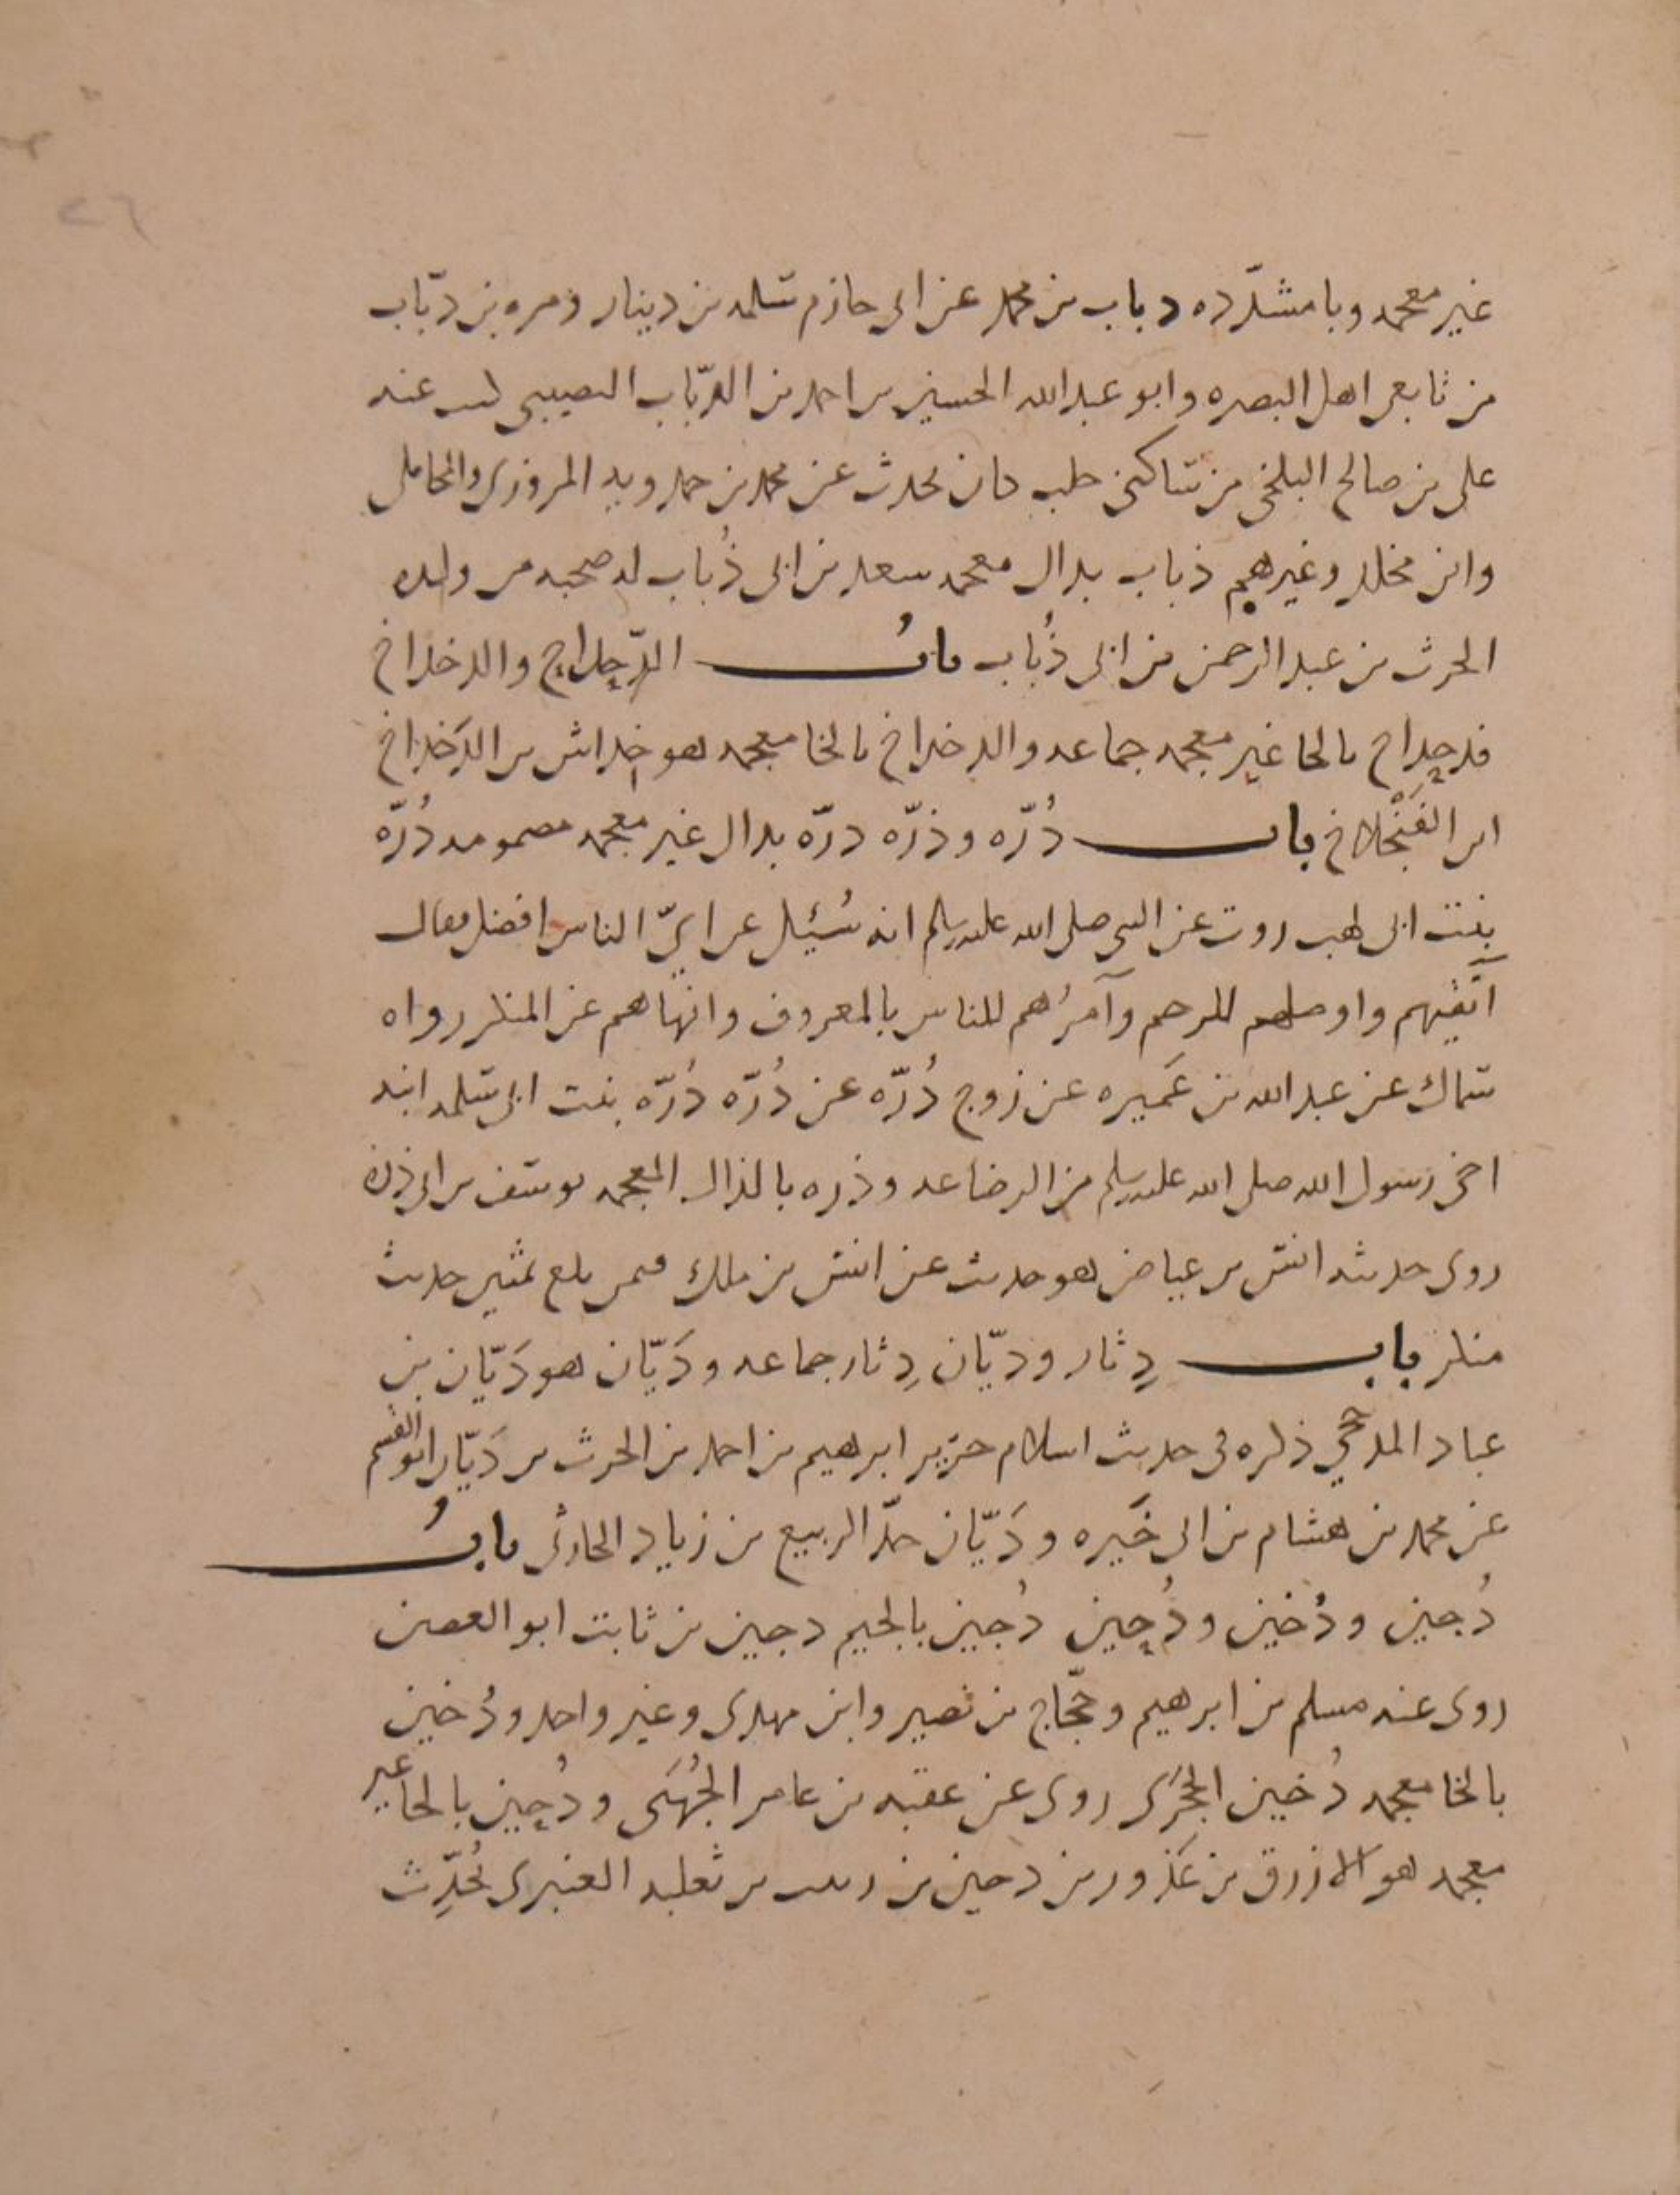 ٢٦
غير معجمه وبا مشدّده دباب بن محمد عن ابى حازم سلمه بن دينار ومره بن دبّاب
من تابعى اهل البصره وابو عبدالله الحسين بن احمد بن الدبّاب النصيبى كتب عنه
على بن صالح البلخى من ساكنى حلب كان يحدث عن محمد بن حمدويه المروزى والمحاملى
وابن مخلد وغيرهم ذباب بذال معجمه سعد بن ابى ذُباب له صحبه من ولده
الحرث بن عبد الرحمن بن ابى ذُباب بابُ الدّحداح والدخداخ
فدحداح بالحا غير معجمه جماعه والدخداخ بالخا معجمه هو خداش بن الدَخداخ
ابن الفَنْجلاخ باب دُرّه وذرّه درّه بدال غير معجمه مضمومه دُرّه
بنت ابى لهب روت عن النبى صلى الله عليه وسلم انه سُئِل عن اىّ الناس افضل فقال
اتقيهم واوصلهم للرحم وآمرُهم للناس بالمعروف وانهاهم عن المنكر رواه
سماك عن عبد الله بن عَميره عن زوج دُرّه عن دُرّه دُرّه بنت ابى سلمه ابنه
اخى رسول الله صلى الله عليه وسلم من الرضاعه وذره بالذال المعجمه يوسف بن ابى ذره
روى حديثه انس بن عياض هو حديث عن انس بن ملك فيمن بلغ ثمنين حديث
منكر باب دِثار وديّان دِثار جماعه ودَيّان هو دَيّان بن
عباد المذحجي ذكره فى حديث اسلام حزير ابرهيم بن احمد بن الحرث بن دَيّان ابو القسم
عن محمد بن هشام بن ابى خَيره ودَيّان جدّ الربيع بن زياد الحارثى بابُ
دُجين ودُخين ودُحين دُجين بالجيم دجين بن ثابت ابو الغصن
روى عنه مسلم بن ابرهيم وحجّاج بن نصير وابن مهدى وغير واحد ودُخين
بالخا معجمه دُخين الحَجْرى روى عن عقبه بن عامر الجُهَنى ودُحين بالحا غير
معجمه هو الازرق بن عَذَوّر بن دحين بن زبيب بن ثعلبه العنبرى يُحدِّث